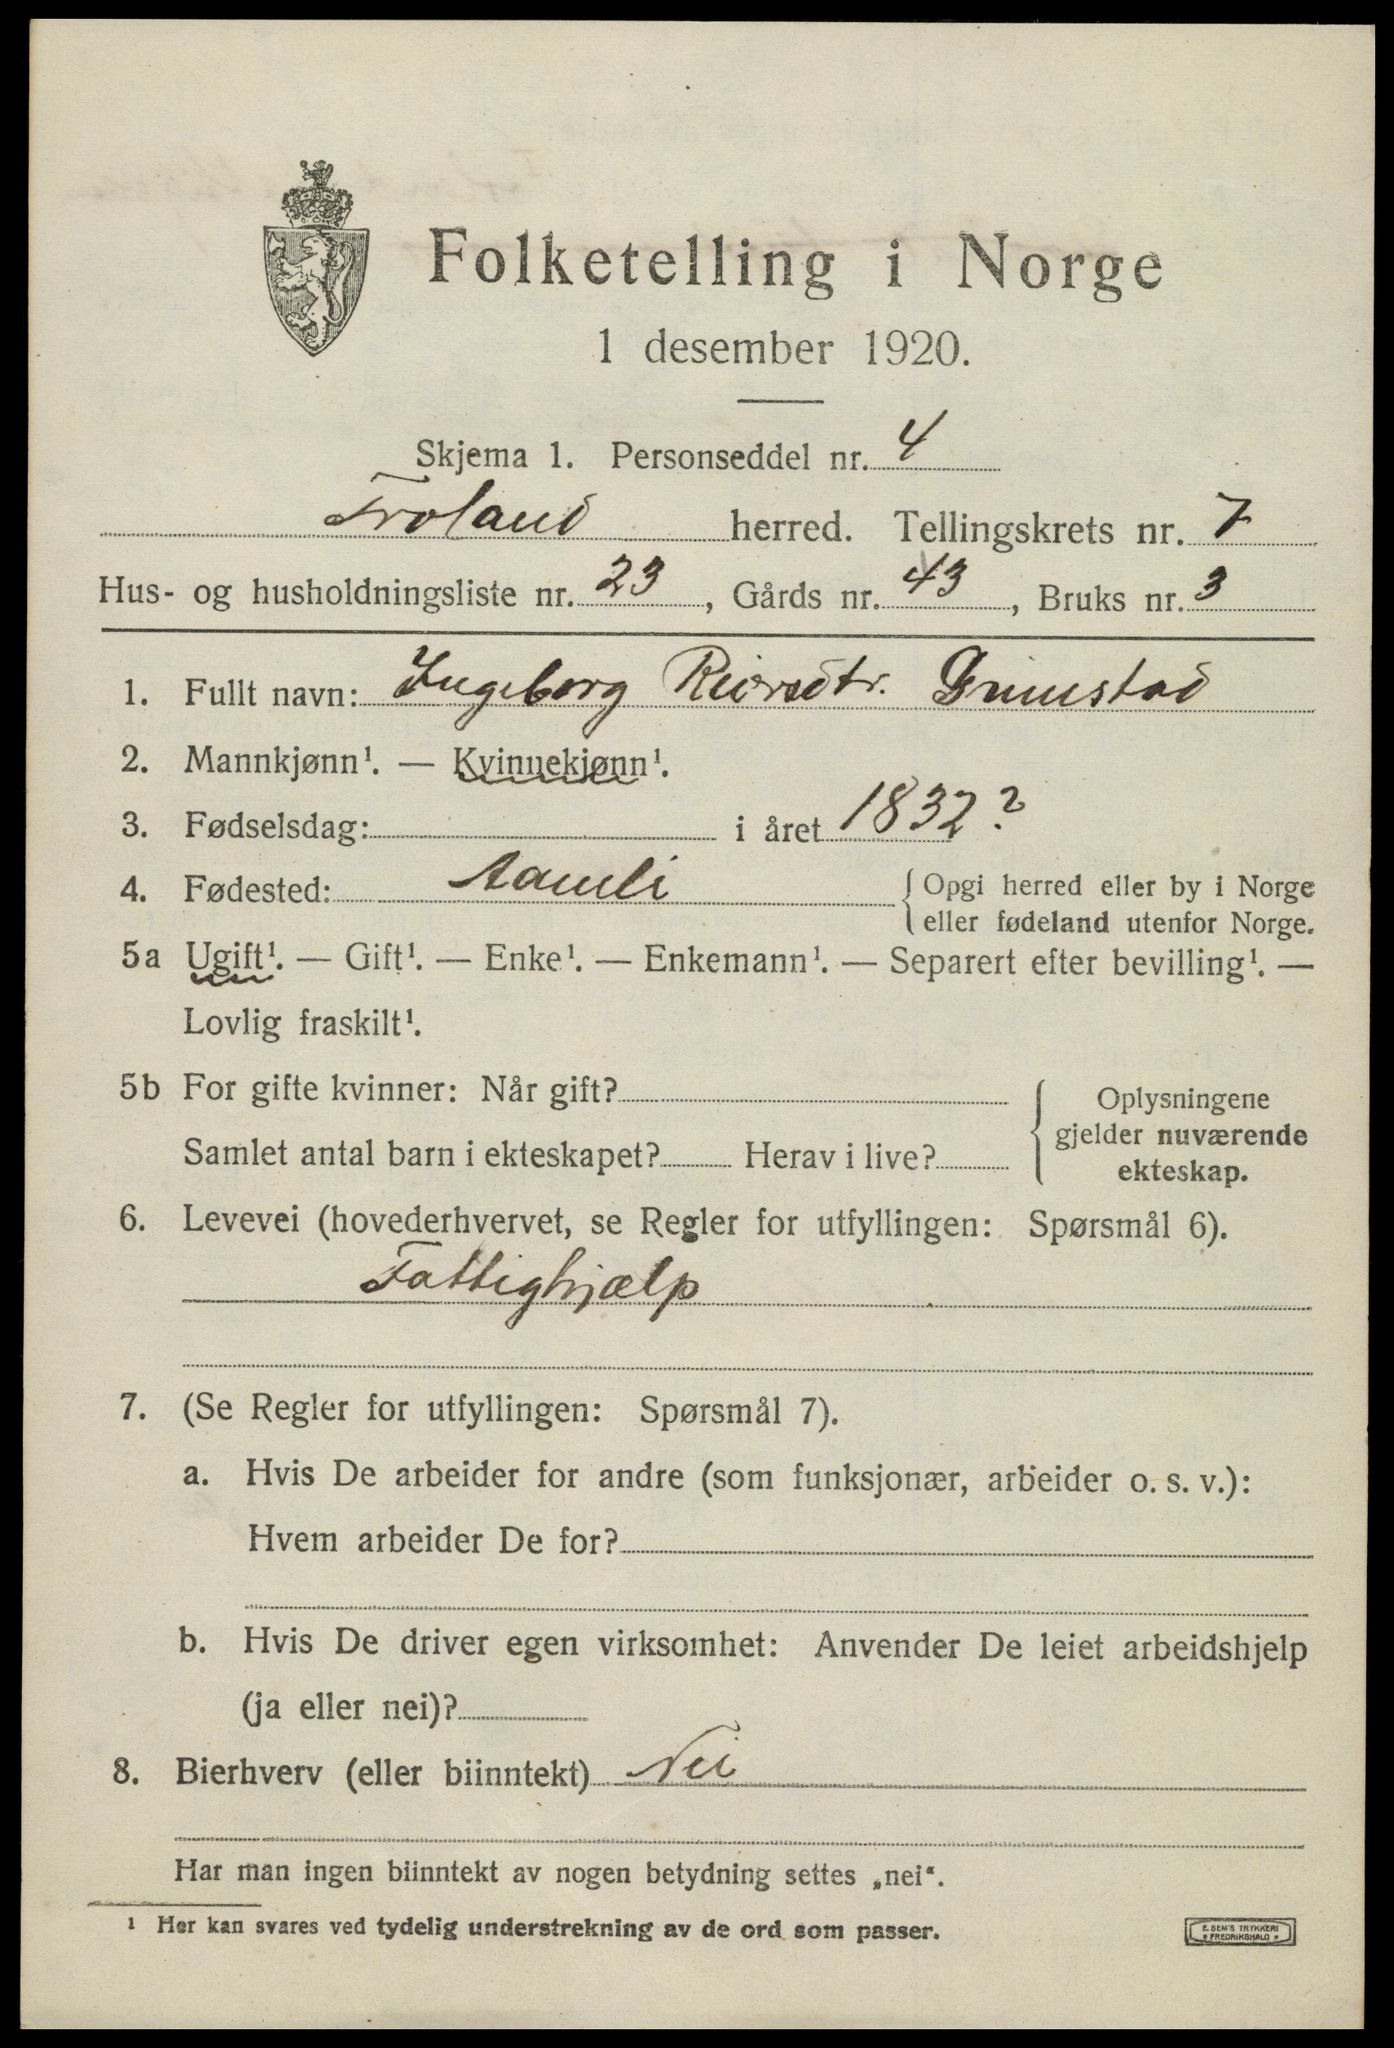 Folketelling i Norge
1 desember 1920.
Skjema 1. Personseddel nr. 4
Froland herred. Tellingskrets nr. 7
Hus- og husholdningsliste nr. 23, Gårds nr. 43, Bruks nr. 3
1. Fullt navn: Ingeborg Reiersdtr. Grimstad
2. Mannkjønn¹. — Kvinnekjønn¹.
3. Fødselsdag: i året 1832?
4. Fødested: Aamli { Opgi herred eller by i Norge
eller fødeland utenfor Norge.
5a Ugift¹. — Gift¹. — Enke¹. — Enkemann¹. — Separert efter bevilling¹. —
Lovlig fraskilt¹.
5b For gifte kvinner: Når gift?
Samlet antal barn i ekteskapet? Herav i live?
{ Oplysningene
gjelder nuværende
ekteskap.
6. Levevei (hovederhvervet, se Regler for utfyllingen: Spørsmål 6).
Fattighjælp
7. (Se Regler for utfyllingen: Spørsmål 7).
a. Hvis De arbeider for andre (som funksjonær, arbeider o. s. v.):
Hvem arbeider De for?
b. Hvis De driver egen virksomhet: Anvender De leiet arbeidshjelp
(ja eller nei)?
8. Bierhverv (eller biinntekt) Nei
Har man ingen biinntekt av nogen betydning settes „nei“.
¹ Her kan svares ved tydelig understrekning av de ord som passer.
E. SEM'S TRYKKERI
* FREDRIKSHALD *